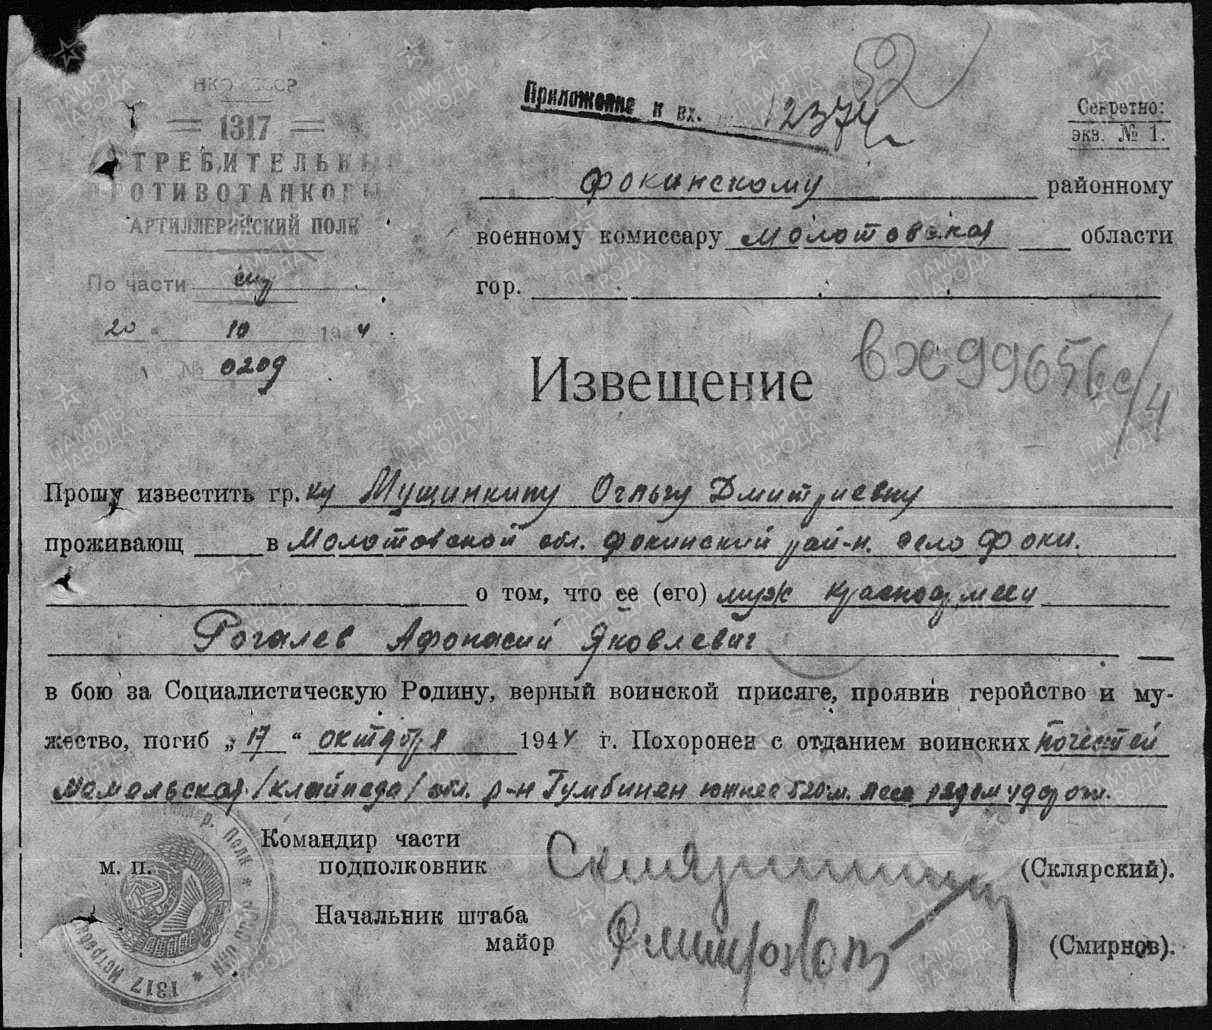 НКО СССР
1317
ИСТРЕБИТЕЛЬНЫЙ
ПРОТИВОТАНКОВЫЙ
АРТИЛЛЕРИЙСКИЙ ПОЛК
По части
20 10 1944
№ 0209
Приложение к вх. 12374
52
Секретно:
экз. № 1.
Фокинскому районному
военному комиссару Молотовская области
гор.
Извещение
вх 99656с/4
Прошу известить гр. ку Мущинкину Ольгу Дмитриевну
проживающ в Молотовской обл. Фокинский рай-н. село Фоки.
о том, что ее (его) муж красноармеец
Рогалев Афонасий Яковлевич
в бою за Социалистическую Родину, верный воинской присяге, проявив геройство и му-
жество, погиб „17“ октября 1944 г. Похоронен с отданием воинских почестей
Мемельская /клайпеда/ обл. р-н Гумбинен южнее 520 м.
Командир части
подполковник (Склярский).
м. п.
Начальник штаба
майор (Смирнов).
1317 Истр